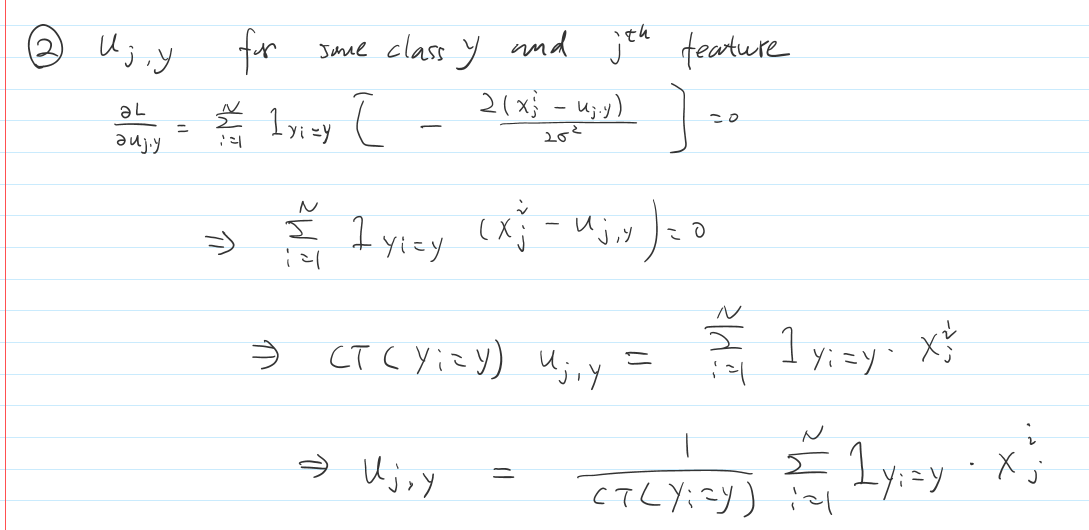 ② u_{j,y} for some class y and j^{th} feature
∂L/∂u_{j,y} = ∑_{i=1}^{N} 1_{yi=y} [ - 2(x_j^i - u_{j,y})/2σ² ] = 0
⇒ ∑_{i=1}^{N} 1_{yi=y} (x_j^i - u_{j,y}) = 0
⇒ CT(yi=y) u_{j,y} = ∑_{i=1}^{N} 1_{yi=y} · x_j^i
⇒ u_{j,y} = 1/CT(yi=y) ∑_{i=1}^{N} 1_{yi=y} · x_j^i